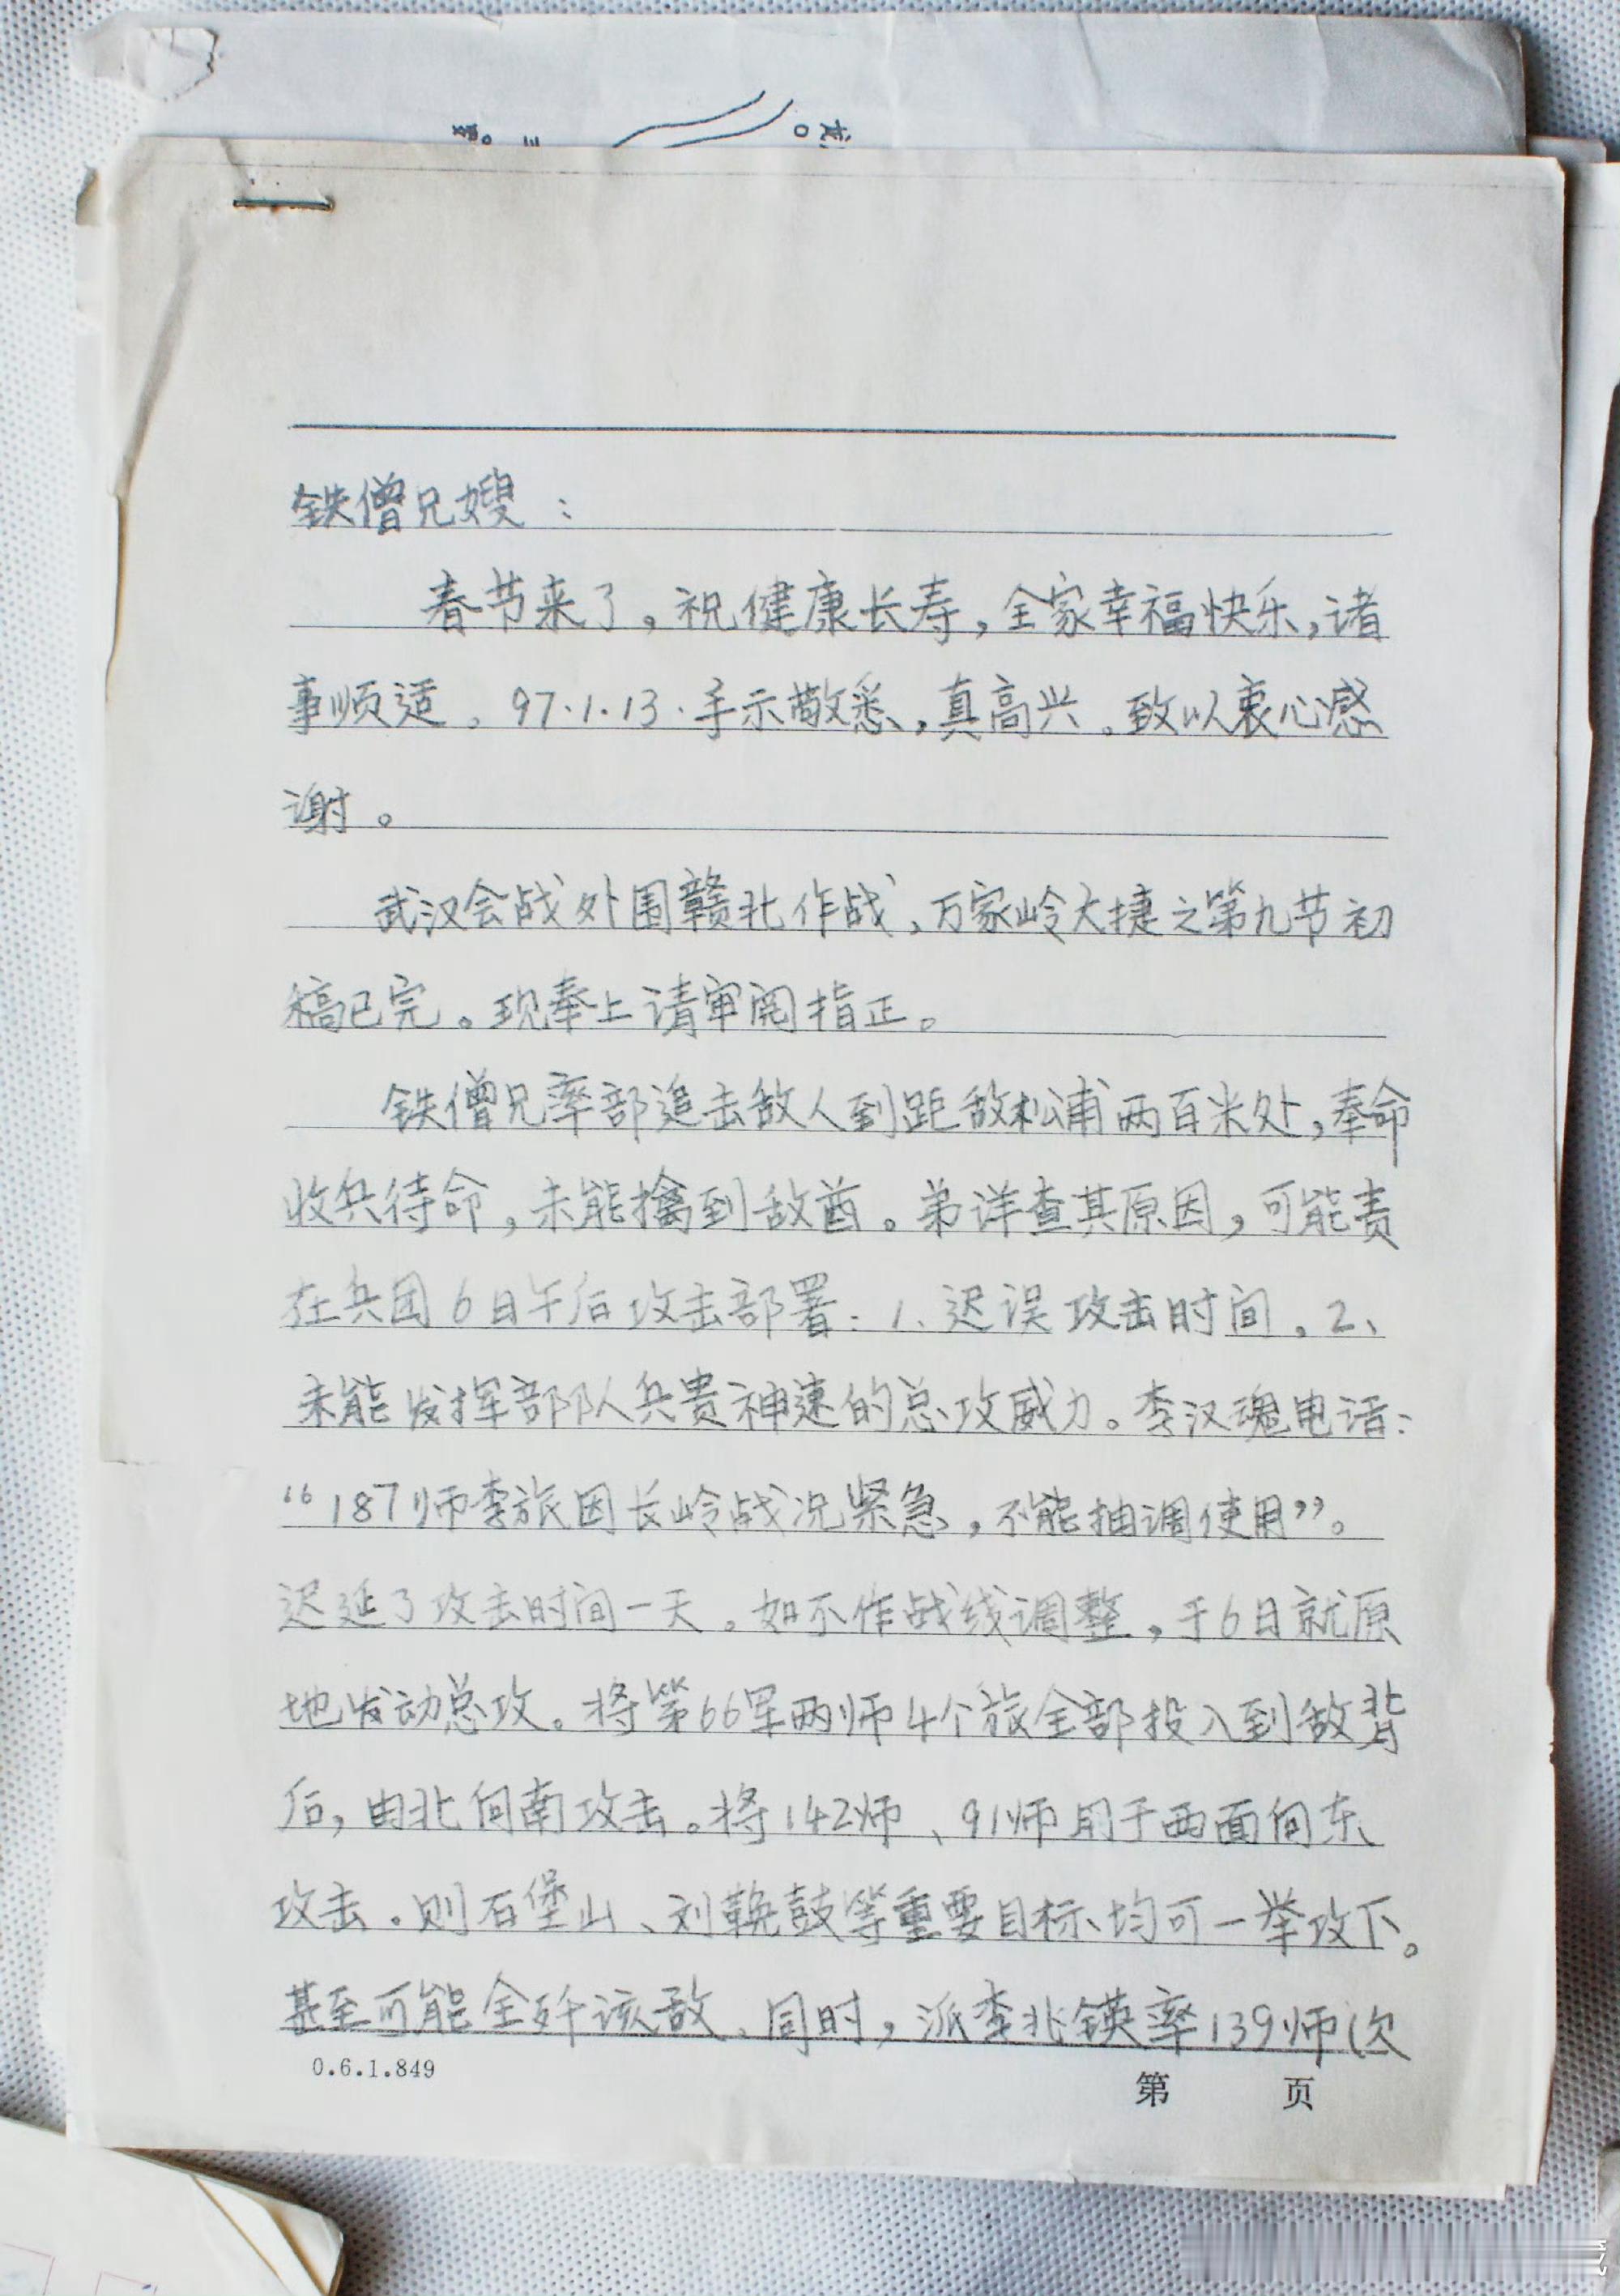 铁僧兄嫂：
春节来了。祝健康长寿，全家幸福快乐，诸
事顺适。97.1.13.手示敬悉，真高兴。致以衷心感
谢。
武汉会战外围赣北作战，万家岭大捷之第九节初
稿已完。现奉上请审阅指正。
铁僧兄率部追击敌人到距敌松浦两百米处，奉命
收兵待命，未能擒到敌酋。弟详查其原因，可能责
在兵团6日午后攻击部署：1、迟误攻击时间。2、
未能发挥部队兵贵神速的总攻威力。李汉魂电话：
“187师李旅因长岭战况紧急，不能抽调使用”。
迟延了攻击时间一天。如不作战线调整，于6日就原
地发动总攻。将第66军两师4个旅全部投入到敌背
后，由北向南攻击。将142师、91师用于西面向东
攻击。则石堡山、刘鞔鼓等重要目标、均可一举攻下。
甚至可能全歼该敌。同时，派李兆锳率139师（次
0.6.1.849
第 页